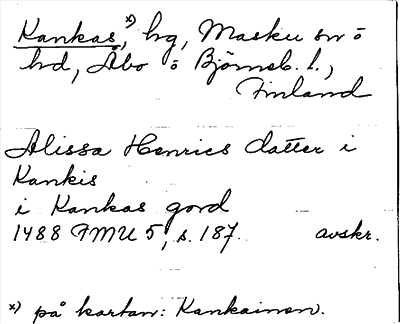 Kankas,*) hg, Masku sn o
hd, Åbo o Björneb. l.,
Finland
Alissa Henrics datter i
Kankis
i Kankas gord
1488 FMU 5, s. 187. avskr.
*) på kartan: Kankainen.